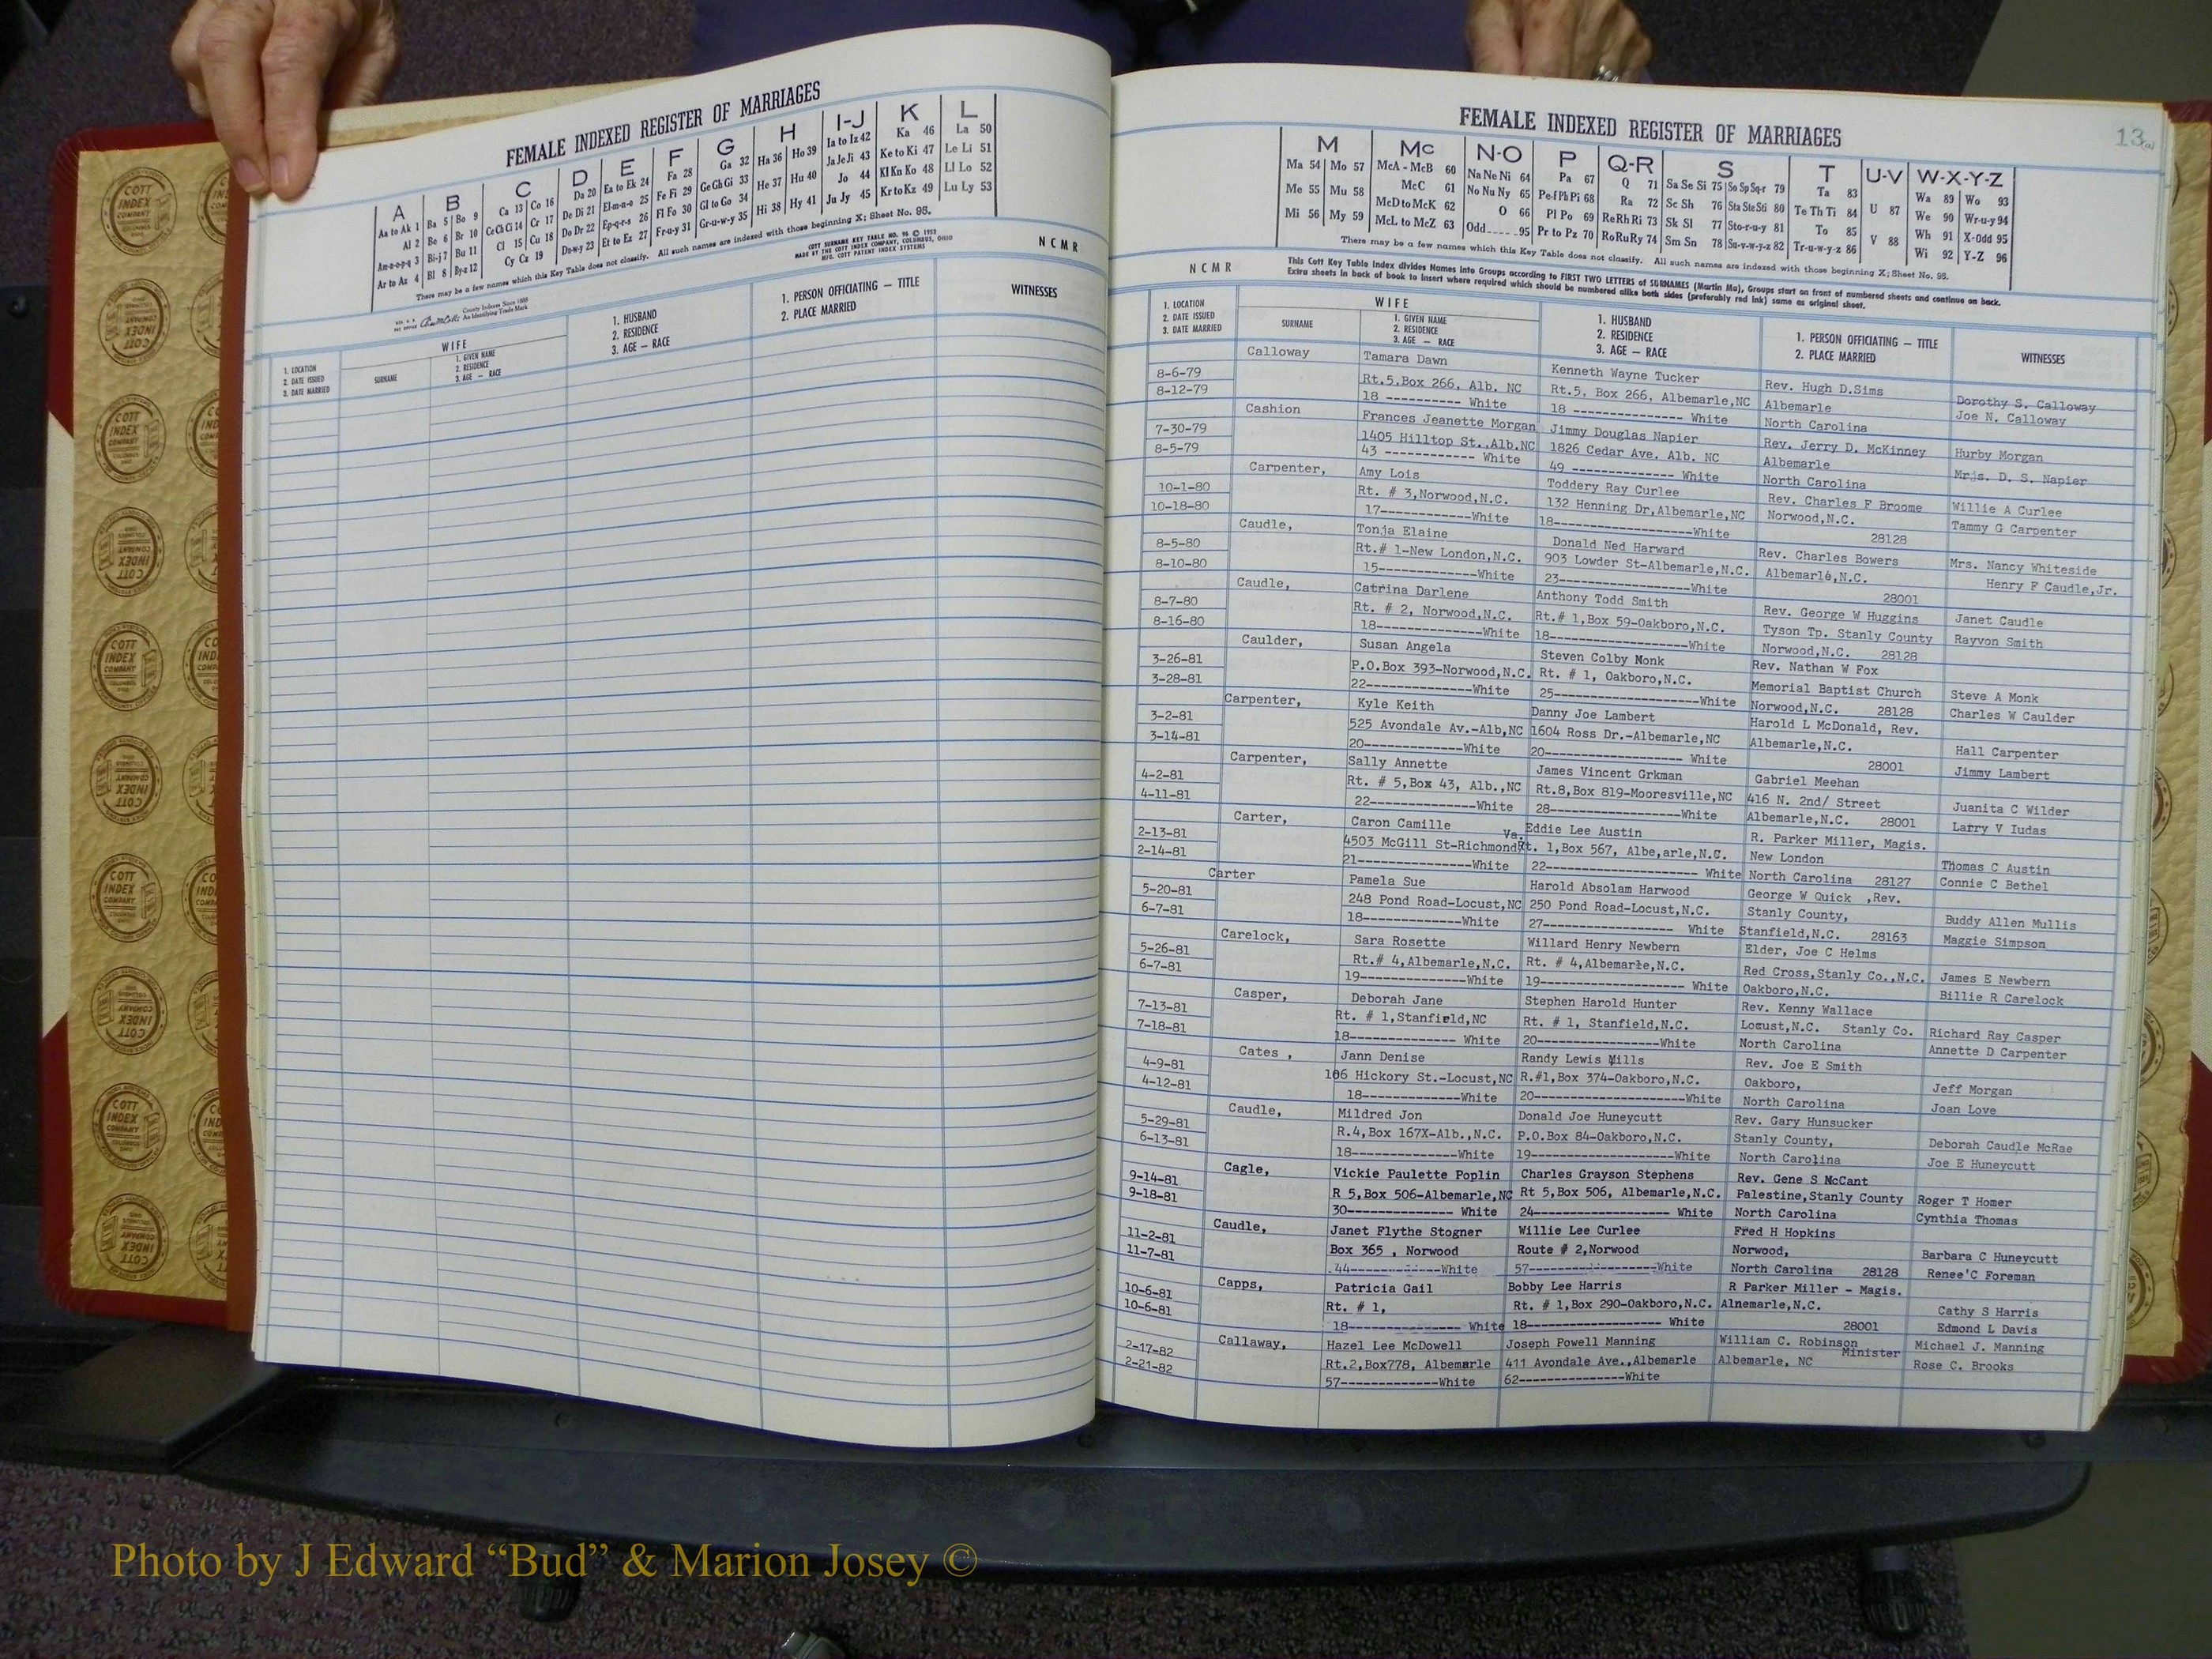 FEMALE INDEXED REGISTER OF MARRIAGES
A B C D E F G H I-J K L
Aa to Ak 1 Ba 5 Bo 9 Ca 13 Co 16 Da 20 Ea to Ek 24 Fa 28 Ga 32 Ha 36 Ho 39 Ia to Iz 42 Ka 46 La 50
Al 2 Be 6 Br 10 Ce Ch Ci 14 Cr 17 De Di 21 El-m-n-o 25 Fe Fi 29 Ge Gh Gi 33 He 37 Hu 40 Ja Je Ji 43 Ke to Ki 47 Le Li 51
Am-n-o-p-q 3 Bi-j 7 Bu 11 Cl 15 Cu 18 Do Dr 22 Ep-q-r-s 26 Fl Fo 30 Gl to Go 34 Hi 38 Hy 41 Jo 44 Kl Kn Ko 48 Ll Lo 52
Ar to Az 4 Bl 8 By-z 12 Cy Cz 19 Du-w-y 23 Et to Ez 27 Fr-u-y 31 Gr-u-w-y 35 Ju Jy 45 Kr to Kz 49 Lu Ly 53
There may be a few names which this Key Table does not classify. All such names are indexed with those beginning X; Sheet No. 95.
COTT SURNAME KEY TABLE NO. 96 © 1953
MADE BY THE COTT INDEX COMPANY, COLUMBUS, OHIO
MFG. COTT PATENT INDEX SYSTEMS
NCMR
County Indexes Since 1888
An Identifying Trade Mark
1. LOCATION
2. DATE ISSUED
3. DATE MARRIED
WIFE
SURNAME
1. GIVEN NAME
2. RESIDENCE
3. AGE — RACE
1. HUSBAND
2. RESIDENCE
3. AGE — RACE
1. PERSON OFFICIATING — TITLE
2. PLACE MARRIED
WITNESSES
FEMALE INDEXED REGISTER OF MARRIAGES
13(a)
M Mc N-O P Q-R S T U-V W-X-Y-Z
Ma 54 Mo 57 McA - McB 60 Na Ne Ni 64 Pa 67 Q 71 Sa Se Si 75 So Sp Sq-r 79 Ta 83 U 87 Wa 89 Wo 93
Me 55 Mu 58 McC 61 No Nu Ny 65 Pe-f Ph Pi 68 Ra 72 Sc Sh 76 Sta Ste Sti 80 Te Th Ti 84 V 88 We 90 Wr-u-y 94
Mi 56 My 59 McD to McK 62 O 66 Pl Po 69 Re Rh Ri 73 Sk Sl 77 Sto-r-u-y 81 To 85 Wh 91 X-Odd 95
McL to McZ 63 Odd 95 Pr to Pz 70 Ro Ru Ry 74 Sm Sn 78 Su-v-w-y-z 82 Tr-u-w-y-z 86 Wi 92 Y-Z 96
There may be a few names which this Key Table does not classify. All such names are indexed with those beginning X; Sheet No. 95.
NCMR
This Cott Key Table Index divides Names into Groups according to FIRST TWO LETTERS of SURNAMES (Martin Ma), Groups start on front of numbered sheets and continue on back.
Extra sheets in back of book to insert where required which should be numbered alike both sides (preferably red ink) same as original sheet.
1. LOCATION
2. DATE ISSUED
3. DATE MARRIED
WIFE
SURNAME
1. GIVEN NAME
2. RESIDENCE
3. AGE — RACE
1. HUSBAND
2. RESIDENCE
3. AGE — RACE
1. PERSON OFFICIATING — TITLE
2. PLACE MARRIED
WITNESSES
Calloway Tamara Dawn Kenneth Wayne Tucker Rev. Hugh D.Sims
8-6-79 Rt.5.Box 266, Alb. NC Rt.5, Box 266, Albemarle,NC Albemarle Dorothy S. Calloway
8-12-79 18 ---------- White 18 -------------- White North Carolina Joe N. Calloway
Cashion Frances Jeanette Morgan Jimmy Douglas Napier Rev. Jerry D. McKinney
7-30-79 1405 Hilltop St.,Alb.NC 1826 Cedar Ave. Alb. NC Albemarle Hurby Morgan
8-5-79 43 ------------ White 49 ------------- White North Carolina Mrjs. D. S. Napier
Carpenter, Amy Lois Toddery Ray Curlee Rev. Charles F Broome
10-1-80 Rt. # 3,Norwood,N.C. 132 Henning Dr,Albemarle,NC Norwood,N.C. Willie A Curlee
10-18-80 17------------White 18-----------------White 28128 Tammy G Carpenter
Caudle, Tonja Elaine Donald Ned Harward Rev. Charles Bowers
8-5-80 Rt.# 1-New London,N.C. 903 Lowder St-Albemarle,N.C. Albemarle,N.C. Mrs. Nancy Whiteside
8-10-80 15-------------White 23-----------------White 28001 Henry F Caudle,Jr.
Caudle, Catrina Darlene Anthony Todd Smith Rev. George W Huggins
8-7-80 Rt. # 2, Norwood,N.C. Rt.# 1,Box 59-Oakboro,N.C. Tyson Tp. Stanly County Janet Caudle
8-16-80 18-------------White 18-----------------White Norwood,N.C. 28128 Rayvon Smith
Caulder, Susan Angela Steven Colby Monk Rev. Nathan W Fox
3-26-81 P.O.Box 393-Norwood,N.C. Rt. # 1, Oakboro,N.C. Memorial Baptist Church Steve A Monk
3-28-81 22--------------White 25-----------------White Norwood,N.C. 28128 Charles W Caulder
Carpenter, Kyle Keith Danny Joe Lambert Harold L McDonald, Rev.
3-2-81 525 Avondale Av.-Alb,NC 1604 Ross Dr.-Albemarle,NC Albemarle,N.C. Hall Carpenter
3-14-81 20-------------White 20---------------- White 28001 Jimmy Lambert
Carpenter, Sally Annette James Vincent Grkman Gabriel Meehan
4-2-81 Rt. # 5,Box 43, Alb.,NC Rt.8,Box 819-Mooresville,NC 416 N. 2nd/ Street Juanita C Wilder
4-11-81 22--------------White 28----------------White Albemarle,N.C. 28001 Larry V Iudas
Carter, Caron Camille Eddie Lee Austin R. Parker Miller, Magis.
2-13-81 4503 McGill St-Richmond Va. Rt. 1,Box 567, Albe,arle,N.C. New London Thomas C Austin
2-14-81 21---------------White 22------------------ White North Carolina 28127 Connie C Bethel
Carter Pamela Sue Harold Absolam Harwood George W Quick ,Rev.
5-20-81 248 Pond Road-Locust,NC 250 Pond Road-Locust,N.C. Stanly County, Buddy Allen Mullis
6-7-81 18-------------White 27---------------- White Stanfield,N.C. 28163 Maggie Simpson
Carelock, Sara Rosette Willard Henry Newbern Elder, Joe C Helms
5-26-81 Rt.# 4,Albemarle,N.C. Rt. # 4,Albemarle,N.C. Red Cross,Stanly Co.,N.C. James E Newbern
6-7-81 19-------------White 19----------------- White Oakboro,N.C. Billie R Carelock
Casper, Deborah Jane Stephen Harold Hunter Rev. Kenny Wallace
7-13-81 Rt. # 1,Stanfield,NC Rt. # 1, Stanfield,N.C. Locust,N.C. Stanly Co. Richard Ray Casper
7-18-81 18-------------- White 20----------------White North Carolina Annette D Carpenter
Cates , Jann Denise Randy Lewis Mills Rev. Joe E Smith
4-9-81 106 Hickory St.-Locust,NC R.#1,Box 374-Oakboro,N.C. Oakboro, Jeff Morgan
4-12-81 18-------------White 20--------------------White North Carolina Joan Love
Caudle, Mildred Jon Donald Joe Huneycutt Rev. Gary Hunsucker
5-29-81 R.4,Box 167X-Alb.,N.C. P.O.Box 84-Oakboro,N.C. Stanly County, Deborah Caudle McRae
6-13-81 18--------------White 19-------------------White North Carolina Joe E Huneycutt
Cagle, Vickie Paulette Poplin Charles Grayson Stephens Rev. Gene S McCant
9-14-81 R 5,Box 506-Albemarle,NC Rt 5,Box 506, Albemarle,N.C. Palestine,Stanly County Roger T Homer
9-18-81 30-------------- White 24------------------- White North Carolina Cynthia Thomas
Caudle, Janet Flythe Stogner Willie Lee Curlee Fred H Hopkins
11-2-81 Box 365 , Norwood Route # 2,Norwood Norwood, Barbara C Huneycutt
11-7-81 44-------------White 57-----------------White North Carolina 28128 Renee'C Foreman
Capps, Patricia Gail Bobby Lee Harris R Parker Miller - Magis.
10-6-81 Rt. # 1, Rt. # 1,Box 290-Oakboro,N.C. Alnemarle,N.C. Cathy S Harris
10-6-81 18--------------- White 18------------------ White 28001 Edmond L Davis
Callaway, Hazel Lee McDowell Joseph Powell Manning William C. Robinson Minister Michael J. Manning
2-17-82 Rt.2,Box778, Albemarle 411 Avondale Ave.,Albemarle Albemarle, NC Rose C. Brooks
2-21-82 57-------------White 62---------------White
COTT INDEX COMPANY
Photo by J Edward “Bud” & Marion Josey ©